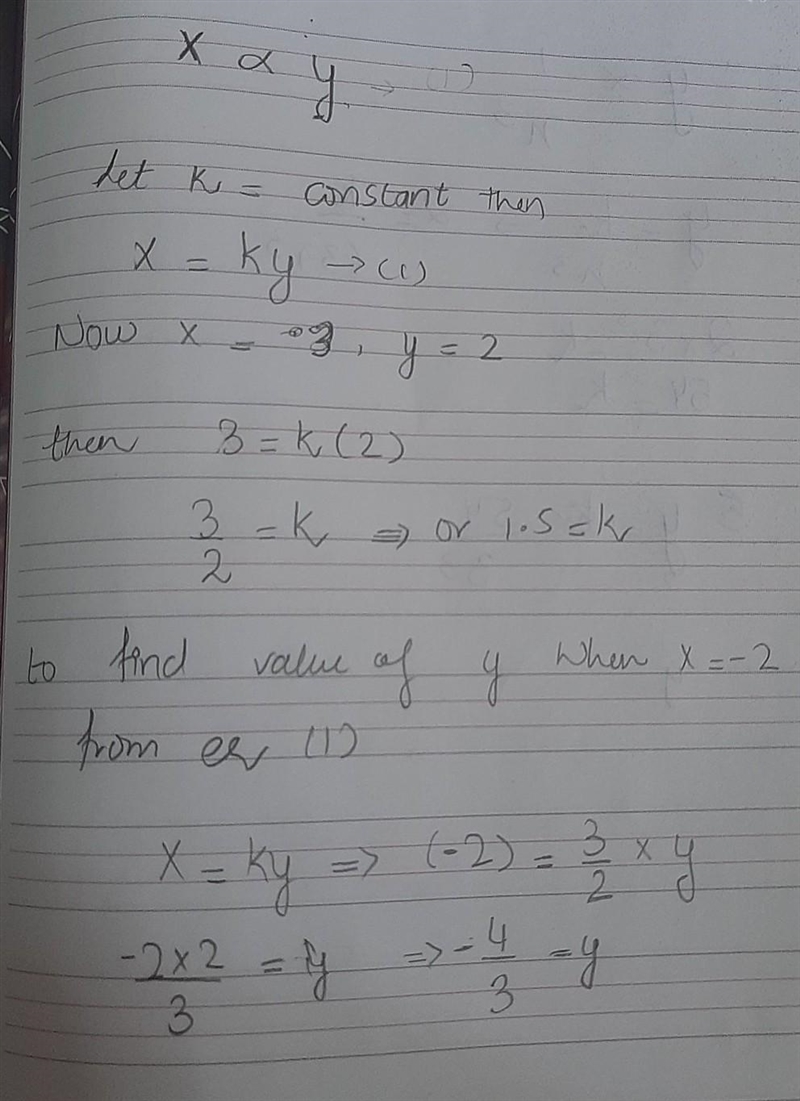 x ∝ y → (1)
Let k = constant then
x = ky → (1)
Now x = 3, y = 2
then 3 = k(2)
3/2 = k ⇒ or 1.5 = k
to find value of y when x = -2
from eq (1)
x = ky ⇒ (-2) = 3/2 × y
-2×2/3 = y ⇒ -4/3 = y